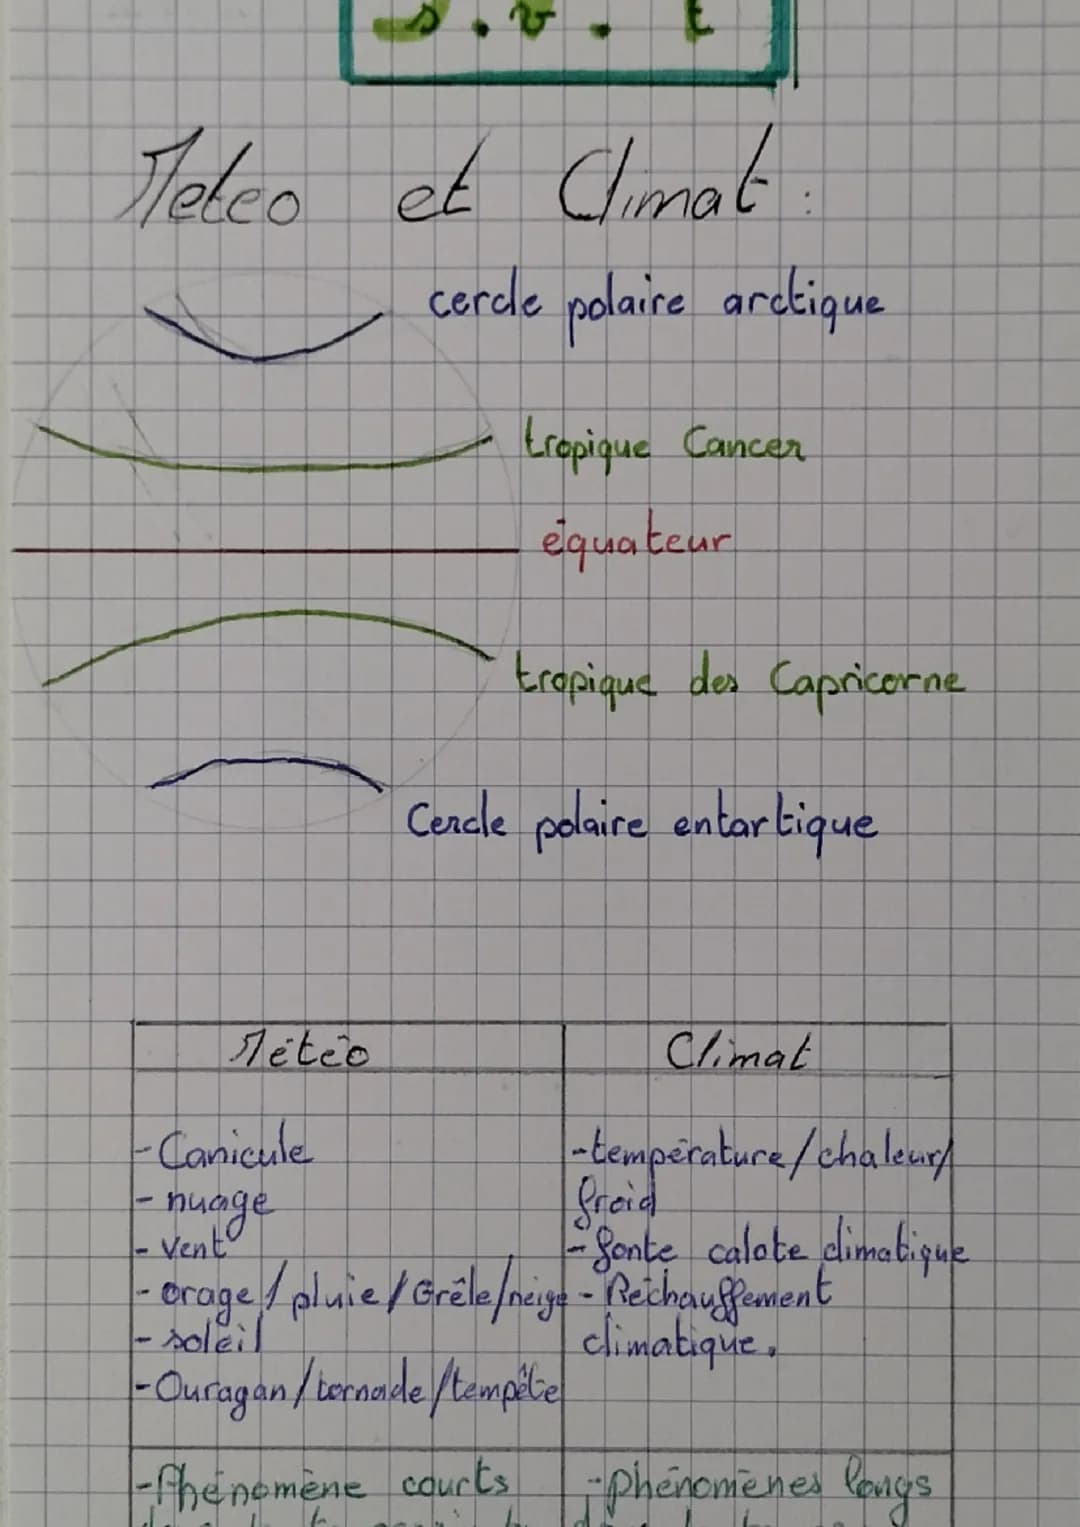 s.v.t
Meteo et Climat :
cercle polaire arctique
tropique Cancer
équateur
tropique des Capricorne
Cercle polaire entartique
Météo
Climat
- Canicule
- nuage
- vent
- orage / pluie / Grêle / neige
- soleil
- Ouragan / tornade / tempête
- température / chaleur /
froid
- fonte calote climatique
- Réchauffement
climatique.
- Phénomène courts
- phénomènes longs